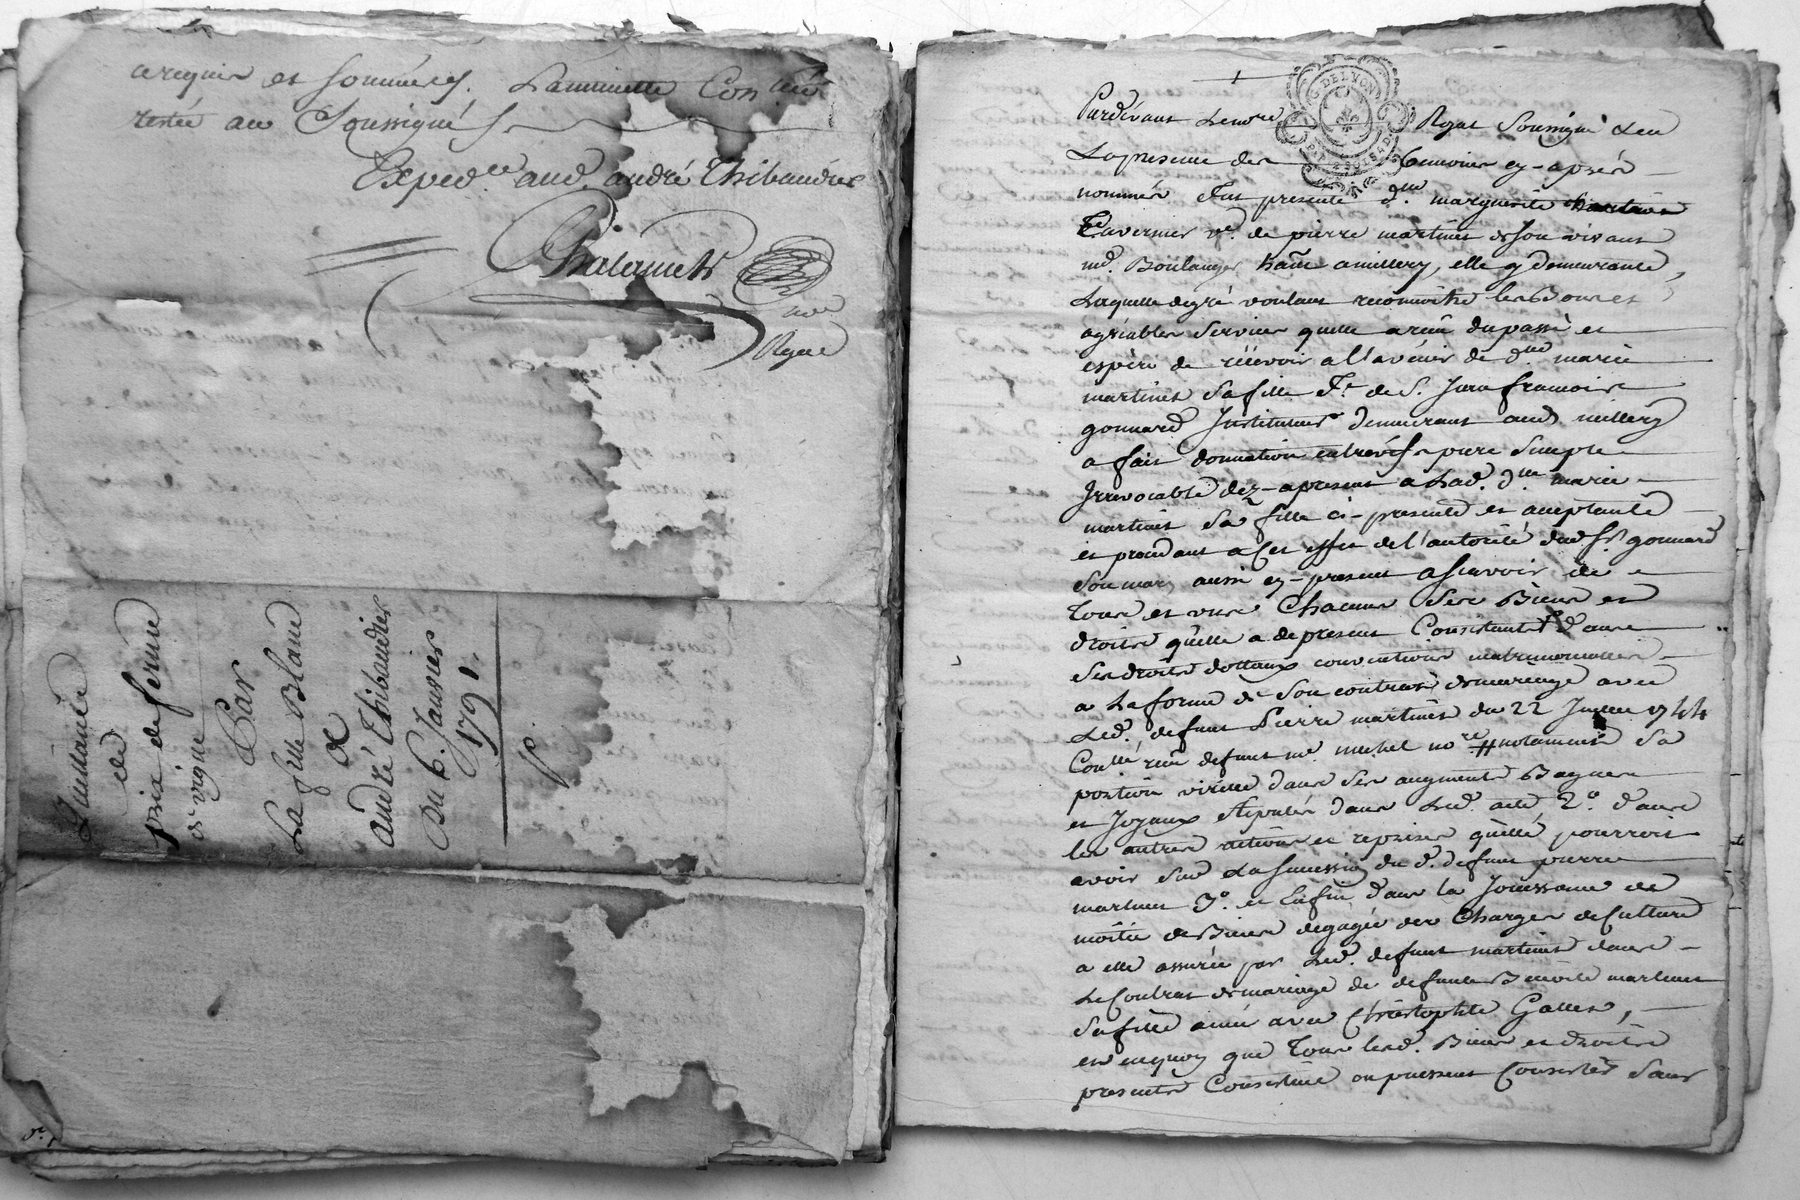 requis et sommés. La minutte Con
testée au Soussigné
Exped.ce aud. andré Thibaudier
Chalamets
Royal
Quittance
de
prix de ferme
de vigne
Par
La fille Blanc
a
andré Thibaudier
Du 6. Janvier
1791.
DE LYON
Pardevant Le no.re Royal Soussigné & en
La presence des temoins cy-après
nommés fut presente d.me marguerite
Tavernier v.e de pierre martinet de son vivant
m.d Boulanger hañt a millery, elle y demeurante,
Laquelle de gré voulant reconnoitre les Bons et
agréables Services quelle a reçu du passé et
espère de recevoir a l'avenir de d.me marie
martinet Sa fille f.e de S. Jean francois
gonnard Instituteur demeurant aud. millery
a fait donnation entrevifs pure Simple
Irrevocable dez-apresent a Lad. d.me marie
martinet Sa fille ci-presente et acceptante
et procedant a Cet effet de l'autorité dud. S.r gonnard
Son mary aussi cy-present a Scavoir de
Tous et uns Chacuns Ses Biens et
droits qu'elle a de present Consistant 1.° dans
Ses droits dottaux conventions matrimonialles
a La forme de Son contrat de mariage avec
Led. defunt Pierre martinet du 22 1744
reçu defunt m.e michel no.re notament Sa
portion virille dans Ses augment Bagues
et Joyaux Stipulés dans Led. acte 2.° dans
les autres actions et reprises qu'elle pourroit
avoir Sur La Succession du d. defunt pierre
martinet 3.° et Enfin dans la Jouissance de
moitié de Biens degagée des Charges de Culture
a elle assurée par Led. defunt martinet dans
Le Contrat de mariage de defunte Benoite martinet
Sa fille ainée avec Christophle Gallet,
en ce que Tous lesd. Biens et droits
presents Consistent ou puissent Consister Sans